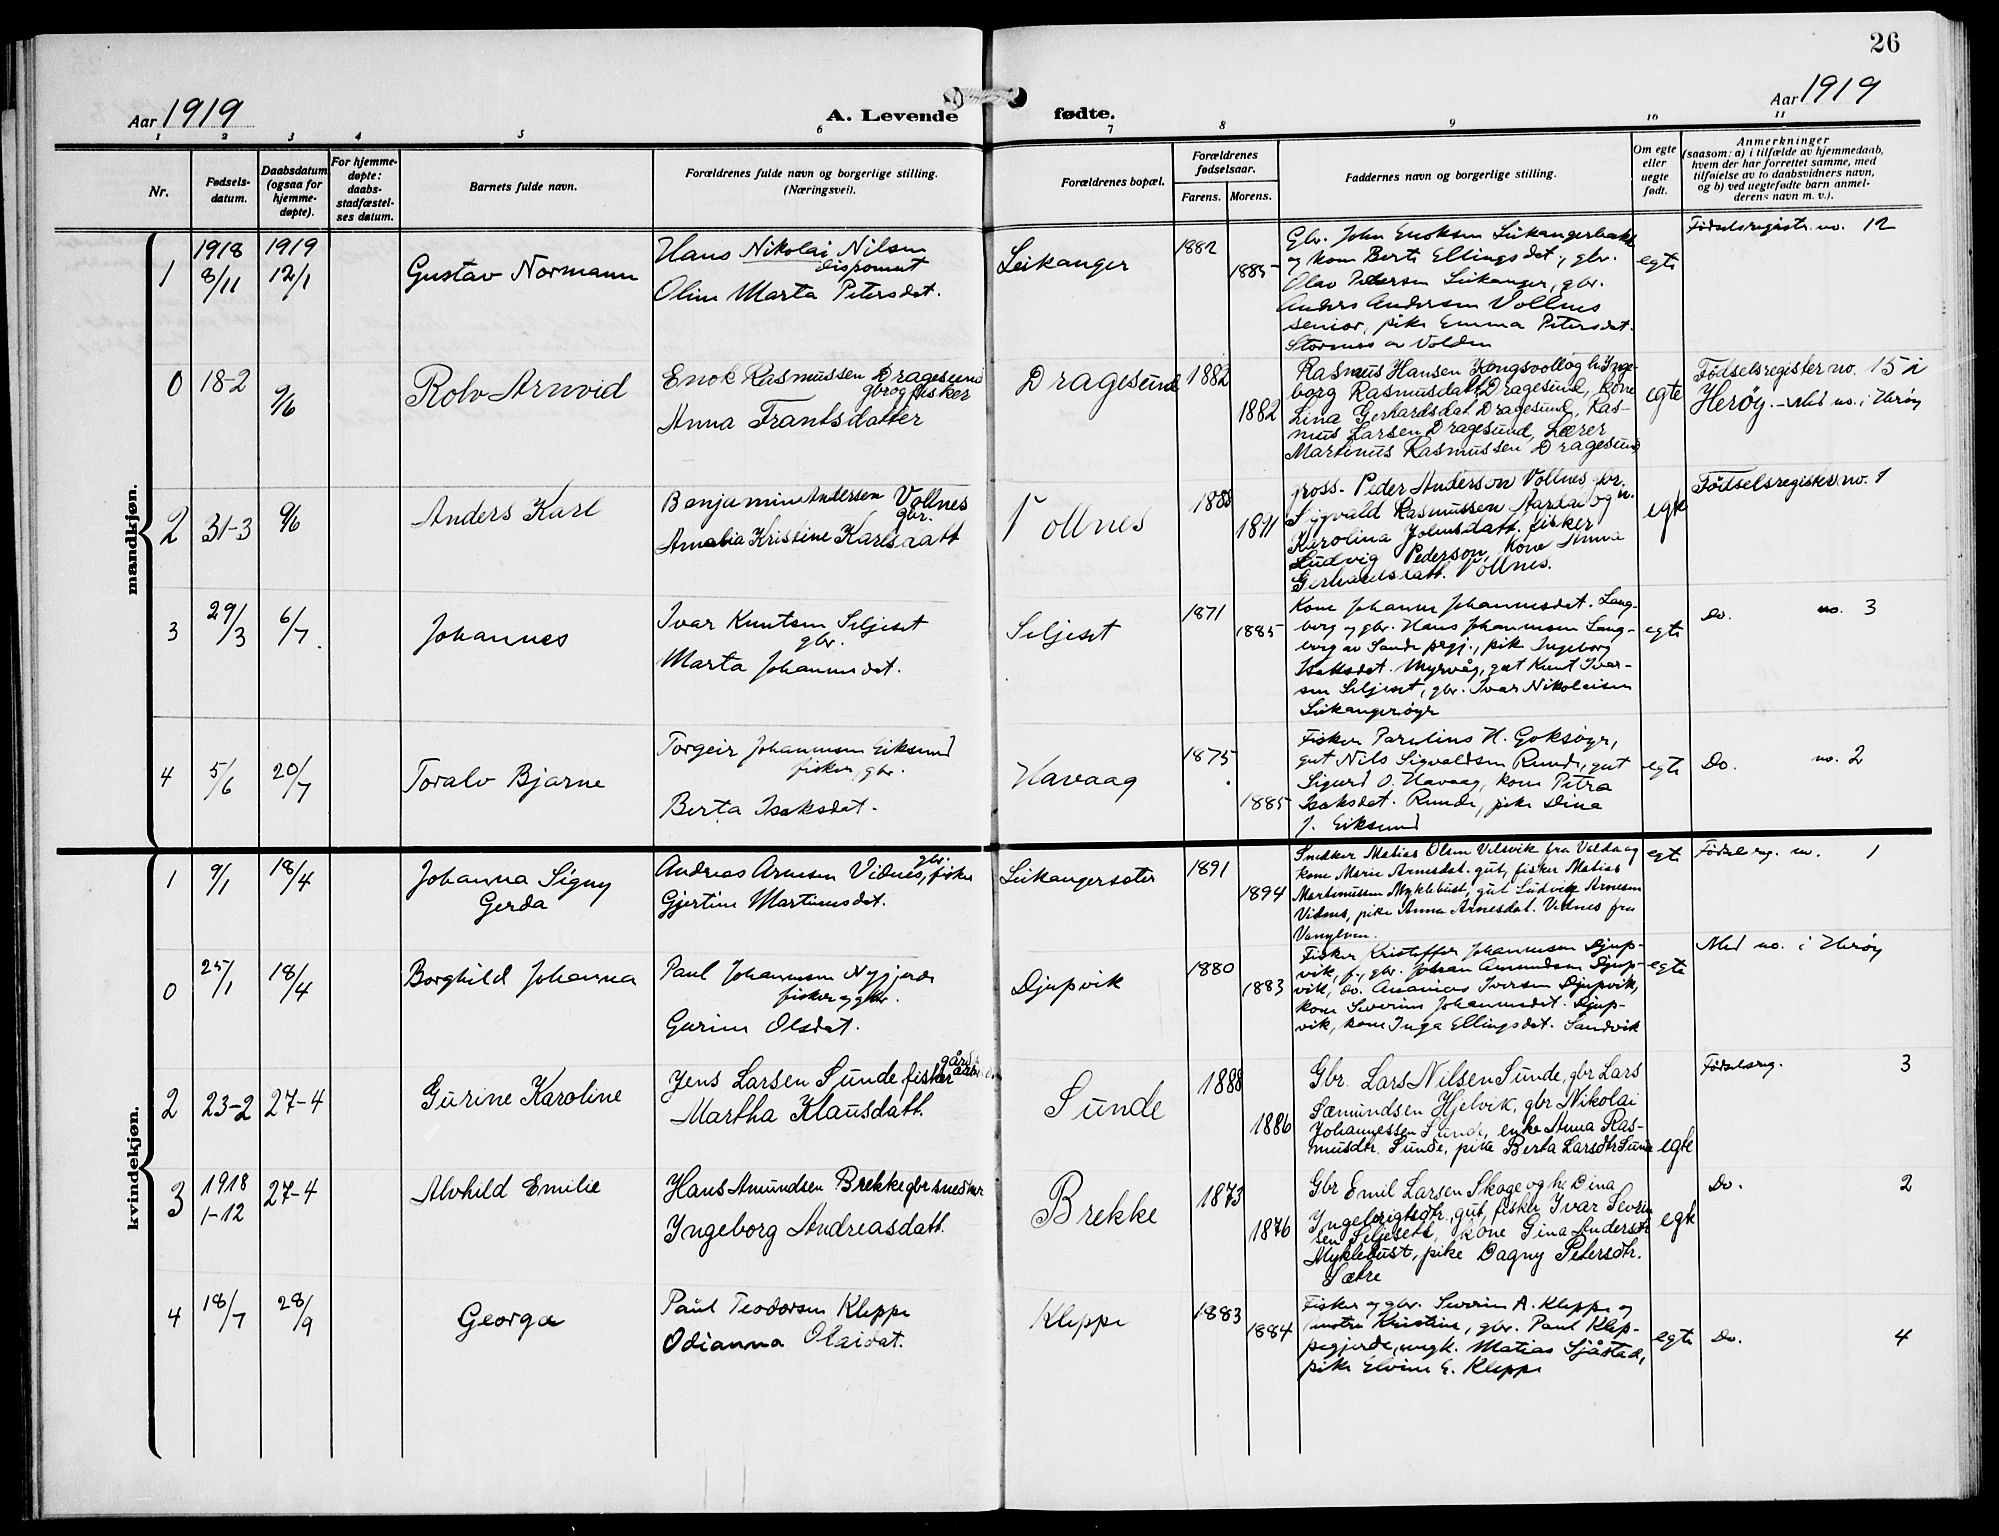 26
Aar 1919
A. Levende fødte.
Aar 1919
1 2 3 4 5 6 7 8 9 10 11
Nr.
Fødsels-
datum.
Daabsdatum
(ogsaa for
hjemme-
døpte).
For hjemme-
døpte:
daabs-
stadfæstel-
ses datum.
Barnets fulde navn.
Forældrenes fulde navn og borgerlige stilling.
(Næringsvei).
Forældrenes bopæl.
Forældrenes
fødselsaar.
Farens. Morens.
Faddernes navn og borgerlige stilling.
Om egte
eller
uegte
født.
Anmerkninger
(saasom: a) i tilfælde av hjemmedaab,
hvem der har forrettet samme, med
tilføielse av to daabsvidners navn,
og b) ved uegtefødte barn anmel-
derens navn m. v.).
mandkjøn.
1
1918
8/11
1919
12/1
Gustav Normann
Hans Nikolai Nilsen
disponent
Oline Marta Petersdat.
Leikanger
1882
1885
Gbr. John Enoksen Leikangerbakk
og kone Berte Ellingsdat., gbr.
Olav Pedersen Leikanger, gbr.
Anders Andersen Vollnes
senior, pike Emma Petersdat.
Stornes av Volden
egte
Fødselsregistr. no. 12
0
18-2
9/6
Rolv Arnvid
Enok Rasmussen Dragesund
gbr og fisker
Anna Frantsdatter
Dragesund
1882
1882
Rasmus Hansen Kongsvoll og h. Inge-
borg Rasmusdatt. Dragesund, kone
Lina Gerhardsdat. Dragesund, Ras-
mus Larsen Dragesund, Lærer
Martinus Rasmussen Dragesund
egte
Fødselsregister no. 15 i
Herøy. - Med no. i Herøy
2
31-3
9/6
Anders Karl
Benjamin Andersen Vollnes
gbr.
Amalia Kristine Karlsdatt
Vollnes
1888
1891
gross. Peder Anderson Vollnes gbr.
Sigvald Rasmussen Aardal og h.
Karolina Johnsdatt. fisker
Ludvig Pederson, kone Anna
Gerhardsdatt. Vollnes.
egte
Fødselsregister. no. 1
3
29/3
6/7.
Johannes
Ivar Knutsen Seljeset
gbr.
Marta Johannesdat.
Seljeset
1871
1885
Kone Johanne Johannesdat. Lang-
berg og gbr. Hans Johannesen Lang-
berg av Sande prgj., pike Ingeborg
Isaksdat. Myrvåg, gut Knut Ivar-
sen Seljeset, gbr. Ivar Nikolaisen
Leikangerøyr
egte
Do. no. 3
4
5/6
20/7
Toralv Bjarne
Torgeir Johannesen Eiksund
fisker, gbr.
Berta Isaksdat.
Havaag
1875
1885
Fisker Parelius H. Goksøyr,
gut Nils Sigvaldsen Runde, gut
Sigurd O. Havaag, kone Petra
Isaksdat. Runde, pike Dina
J. Eiksund
egte
Do. no. 2
kvindekjøn.
1
9/1
18/4
Johanna Signy
Gerda
gbr.
Andreas Arnesen Vidnes, fisker
Gjertine Martinusdat.
Leikangersæter
1891
1894
Snedker Matias Olsen Velsvik fra Volda og
kone Marie Arnesdat. gut, fisker Matias
Martinussen Myklebust, gut Ludvig Arnesen
Vidnes, pike Anna Arnesdat. Vidnes fra
Vanylven.
egte
Fødselreg. no. 1
0
25/1
18/4
Borghild Johanna
Paul Johannesen Nygjerde
fisker og gbr.
Gurine Olsdat.
Djupvik
1880
1883
Fisker Kristoffer Johannesen Djup-
vik, f., gbr. Johan Amundsen Djup-
vik, do. Ananias Iversen Djupvik,
kone Severine Johannesdat. Djup-
vik, kone Inga Ellingsdat. Sandvik
egte
Med no. i Herøy
2
23-2
27-4
Gurine Karoline
Jens Larsen Sunde fisker
Martha Klausdatt.
Sunde
1888
1886
Gbr. Lars Nilsen Sunde, gbr Lars
Sæmundsen Hjelvik, gbr Nikolai
Johannessen Sunde, enke Anna Ras-
musdtr. Sunde, pike Berta Larsdtr Sunde
egte
Fødselsreg. 3
3
1918
1-12
27-4
Alvhild Emilie
Hans Amundsen Brekke gbr snedker
Ingeborg Andreasdatt.
Brekke
1873
1876
Gbr Emil Larsen Skoge og h. Dina
Ingebrigtsdtr., gut, fisker Ivar Severin
sen Seljeset, kone Gina Andersdtr
Myklebust, pike Dagny Petersdtr.
Sætre
egte
Do. 2
4
18/7
28/9
Georga
Paul Teodorsen Kleppe
Odianna Olaidat.
Kleppe
1883
1884
Fisker og gbr. Severin A. Kleppe og
hustru Kristine, gbr. Paul Klep-
pegjerde, ungk. Matias Sjåstad,
pike Elvine E. Kleppe
egte
Do. 4